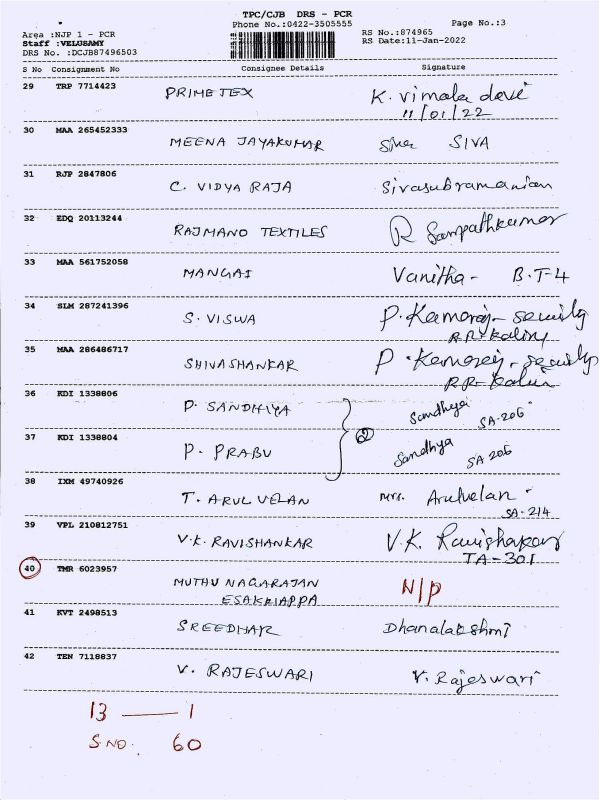 TPC/CJB DRS - PCR
Phone No.:0422-3505555
Page No.:3
Area :NJP 1 - PCR
RS No.:874965
Staff :VELUSAMY
RS Date:11-Jan-2022
DRS No. :DCJB87496503
S No Consignment No Consignee Details Signature
29 TRP 7714423 PRIMETEX K. Vimala devi
11/01/22
30 MAA 265452333 MEENA JAYAKUMAR SIVA
31 RJP 2847806 C. VIDYA RAJA Sivasubramanian
32 EDQ 20113244 RAJMANO TEXTILES R Sampathkumar
33 MAA 561752058 MANGAI Vanitha - B.T-4
34 SLM 287241396 S. VISWA P. Kamaraj - security
35 MAA 286486717 SHIVASHANKAR P. Kamaraj - security
36 KDI 1338806 P. SANDHIYA Sandhya SA-206
37 KDI 1338804 P. PRABU Sandhya SA 206
38 IXM 49740926 T. ARUL VELAN Mrs. Arulvelan
SA-214
39 VPL 210812751 V.K. RAVISHANKAR V.K. Ravishankar
TA-301
40 TMR 6023957 MUTHU NAGARAJAN N/P
ESAKKIAPPA
41 KVT 2498513 SREEDHAR Dhanalakshmi
42 TEN 7118837 V. RAJESWARI V. Rajeswari
13 — 1
S.NO. 60